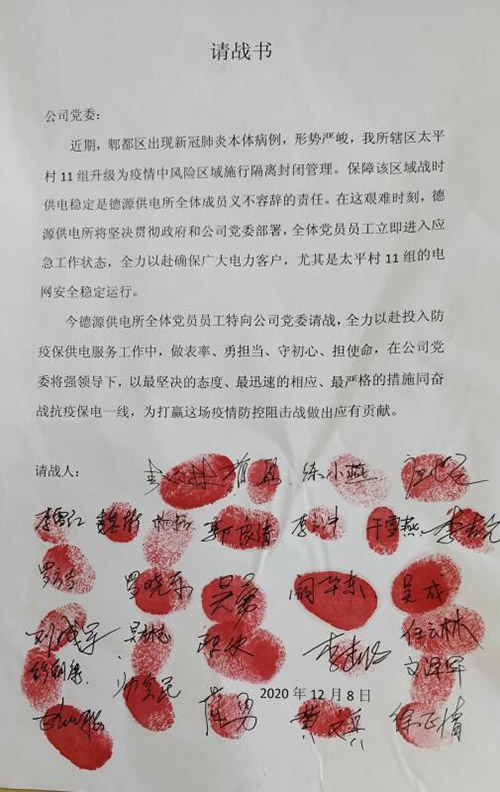 请战书
公司党委：
近期，郫都区出现新冠肺炎本体病例，形势严峻，我所辖区太平
村 11 组升级为疫情中风险区域施行隔离封闭管理。保障该区域战时
供电稳定是德源供电所全体成员义不容辞的责任。在这艰难时刻，德
源供电所将坚决贯彻政府和公司党委部署，全体党员员工立即进入应
急工作状态，全力以赴确保广大电力客户，尤其是太平村 11 组的电
网安全稳定运行。
今德源供电所全体党员员工特向公司党委请战，全力以赴投入防
疫保供电服务工作中，做表率、勇担当、守初心、担使命，在公司党
委将强领导下，以最坚决的态度、最迅速的相应、最严格的措施同奋
战抗疫保电一线，为打赢这场疫情防控阻击战做出应有贡献。
请战人：
练小燕
郭良清 干雪燕
罗晓东 吴勇 闫华东 吴成
任云林
文泽军
2020 年 12 月 8 日
薛勇 徐正情